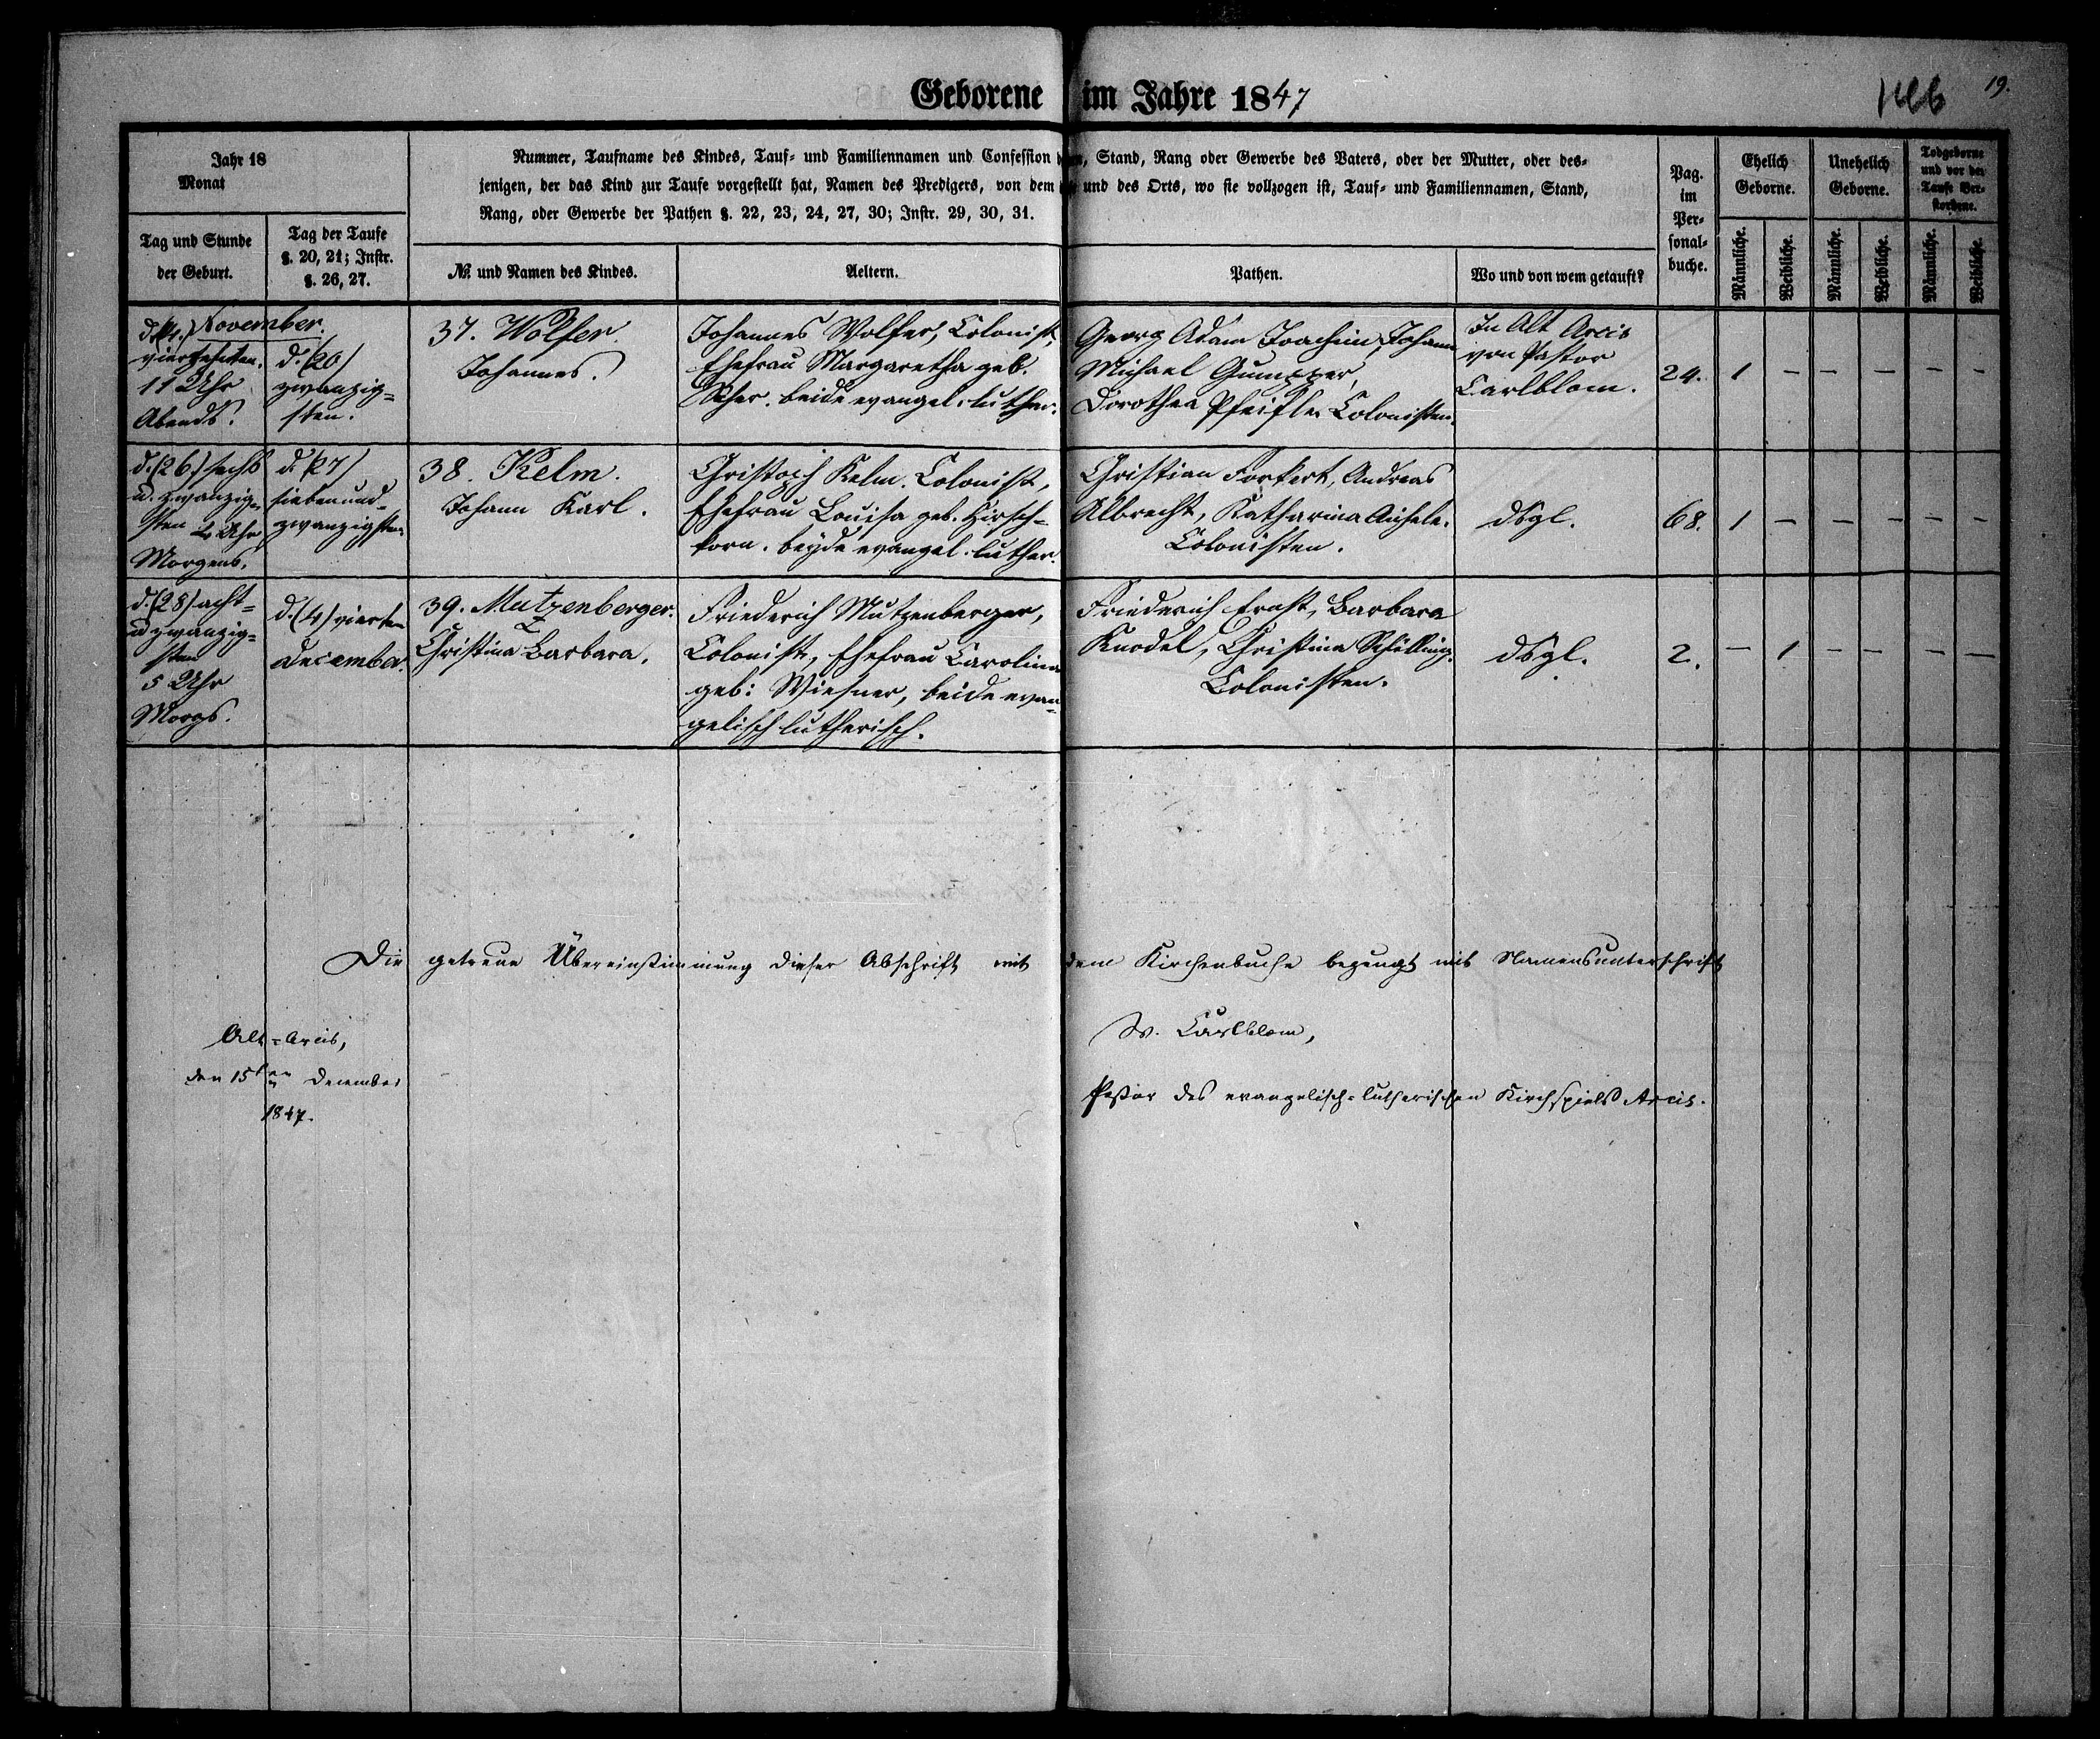 Geborene im Jahre 1847
146 19.
Jahr 18
Monat
Tag und Stunde
der Geburt.
Tag der Taufe
§. 20, 21; Instr.
§. 26, 27.
Nummer, Taufname des Kindes, Tauf- und Familiennamen und Confession, Stand, Rang oder Gewerbe des Vaters, oder der Mutter, oder des-
jenigen, der das Kind zur Taufe vorgestellt hat, Namen des Predigers, von dem und des Orts, wo sie vollzogen ist, Tauf- und Familiennamen, Stand,
Rang, oder Gewerbe der Pathen §. 22, 23, 24, 27, 30; Instr. 29, 30, 31.
№. und Namen des Kindes.
Aeltern.
Pathen.
Wo und von wem getauft?
Pag.
im
Per-
sonal-
buche.
Ehelich
Geborne.
Unehelich
Geborne.
Todgeborne
und vor der
Taufe Ver-
storbene.
Männliche.
Weibliche.
Männliche.
Weibliche.
Männliche.
Weibliche.
November.
vierzehnten.
11 Uhr
Abends.
d. (20)
zwanzig-
sten.
37. Wolfer.
Johannes.
Johannes Wolfer, Colonist,
Ehefrau Margaretha geb.
beide evangel: luther.
Georg Adam Joachim, Johann
Michael Gumpper,
Dorothea Pfeifle. Colonisten.
In Alt Arcis
von Pastor
Carlblom.
24. 1 – – – – –
d. (26) sechs
u. zwanzig-
sten 4 Uhr
Morgens.
d. (27)
sieben und-
zwanzigsten
38. Kelm.
Johann Karl.
Christoph Kelm. Colonist,
Ehefrau Louisa geb. Hirsch-
korn. beyde evangel. luther.
Christian Forkert, Andreas
Albrecht, Katharina Aichele.
Colonisten.
dsgl.
68. 1 – – – – –
d. (28) acht-
u zwanzig-
sten
5 Uhr
Morgs.
d. (4) vierten
December.
39. Mutzenberger.
Christina Barbara.
Friederich Mutzenberger,
Colonist, Ehefrau Carolina
geb: Wiesner, beide evan-
gelisch lutherisch.
Friederich Ernst, Barbara
Knodel, Christina Schilling.
Colonisten.
dsgl.
2. – 1 – – – –
Die getreue Übereinstimmung dieser Abschrift mit dem Kirchenbuche bezeugt mit Namensunterschrift
Alt-Arcis,
den 15ten December
1847.
W. Carlblom,
Pastor des evangelisch-lutherischen Kirchspiels Arcis.